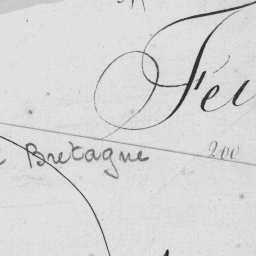 Feu
Bretagne 200